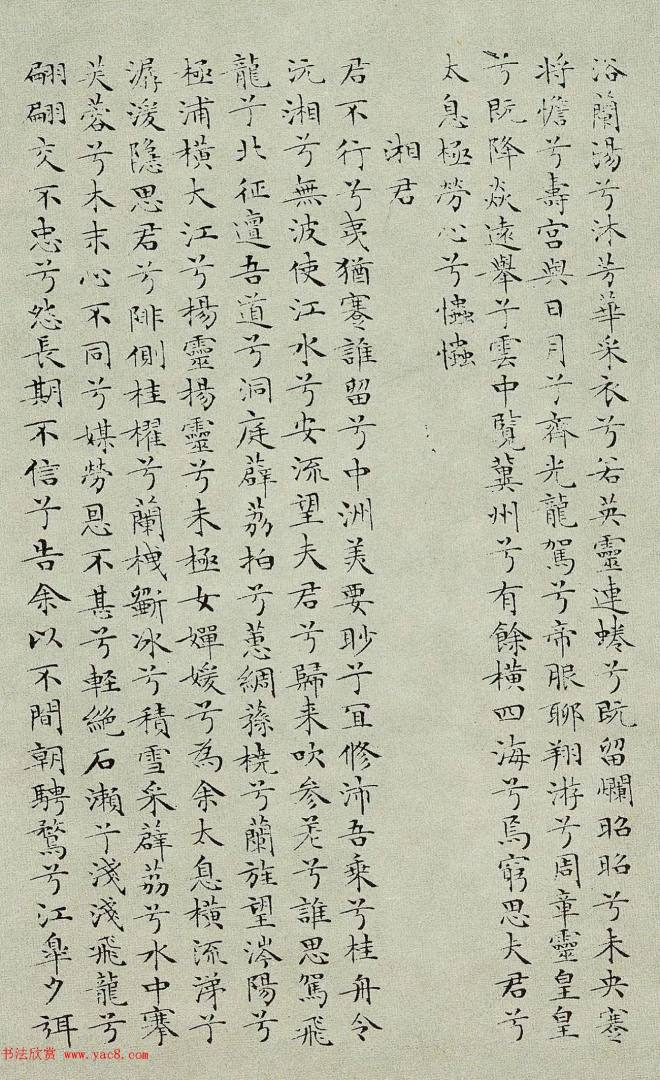 浴蘭湯兮沐芳華采衣兮若英靈連蜷兮既留爛昭昭兮未央蹇
将憺兮壽宮與日月兮齊光龍駕兮帝服聊翔游兮周章靈皇皇
兮既降焱遠舉兮雲中覽冀州兮有餘橫四海兮焉窮思夫君兮
太息極勞心兮忡忡
湘君
君不行兮夷猶蹇誰留兮中洲美要眇兮宜修沛吾乘兮桂舟令
沅湘兮無波使江水兮安流望夫君兮歸来吹参差兮誰思駕飛
龍兮北征邅吾道兮洞庭薜荔拍兮蕙綢蓀橈兮蘭旌望涔陽兮
極浦橫大江兮揚靈揚靈兮未極女嬋媛兮為余太息橫流涕兮
潺湲隱思君兮陫側桂櫂兮蘭枻斲冰兮積雪采薜荔兮水中搴
芙蓉兮木末心不同兮媒勞恩不甚兮軽絶石瀨兮淺淺飛龍兮
翩翩交不忠兮怨長期不信兮告余以不間朝騁騖兮江皐夕弭
书法欣赏 www.yac8.com